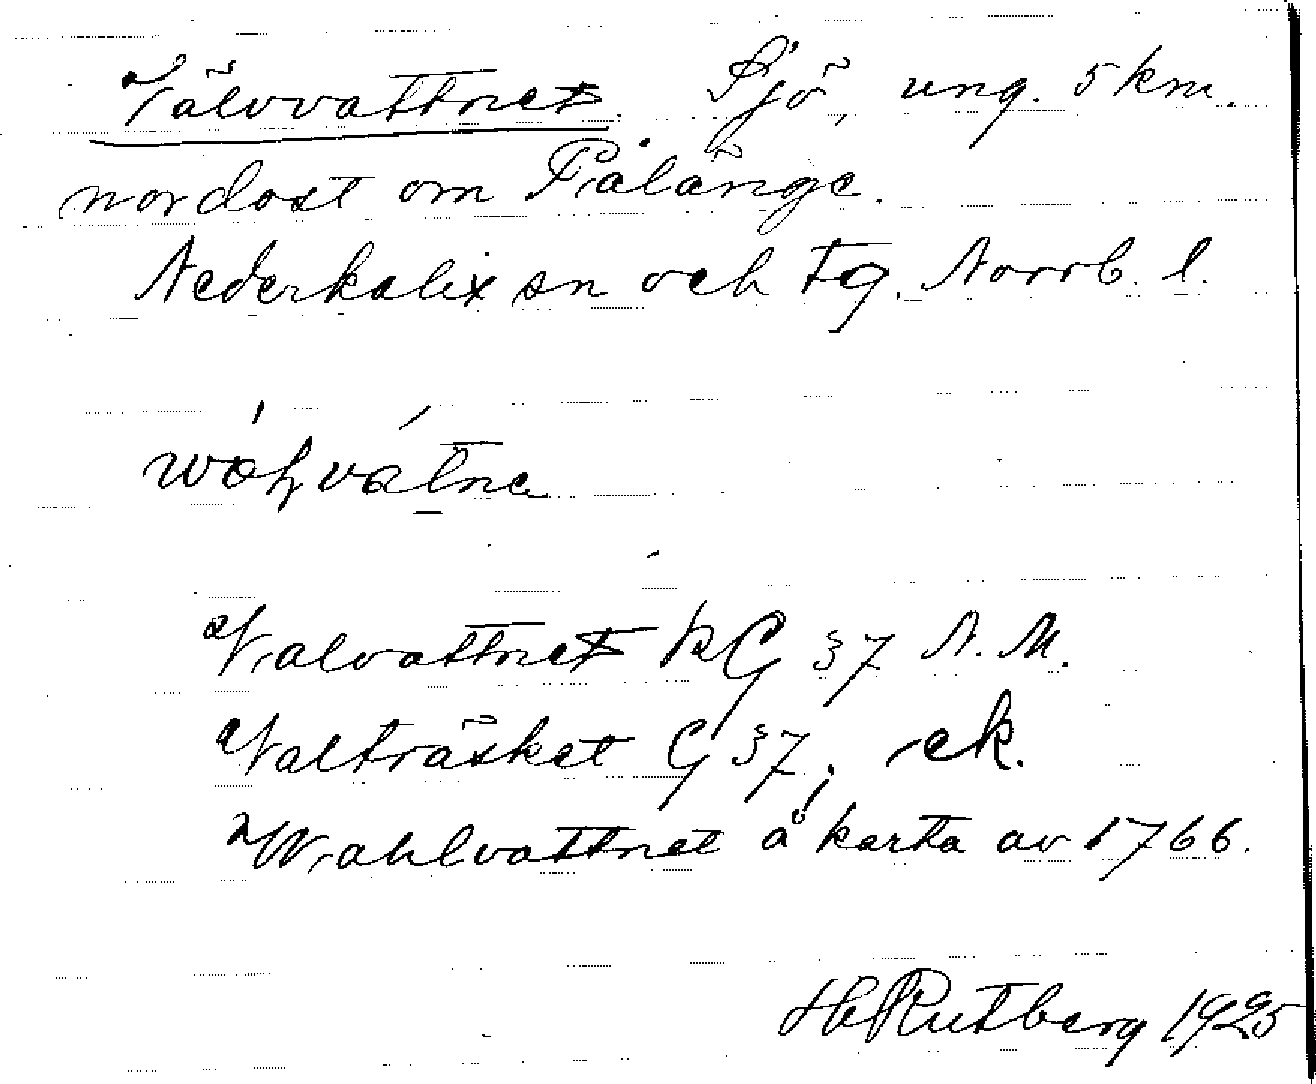 Välvvattnet. Sjö, ung. 5 km.
nordost om Pålänge.
Nederkalix sn och tg. Norrb. l.
Valvattnet RG 37 N. M.
Valträsket G 37; ek.
Wahlvattnet å karta av 1766.
H Rutberg 1925